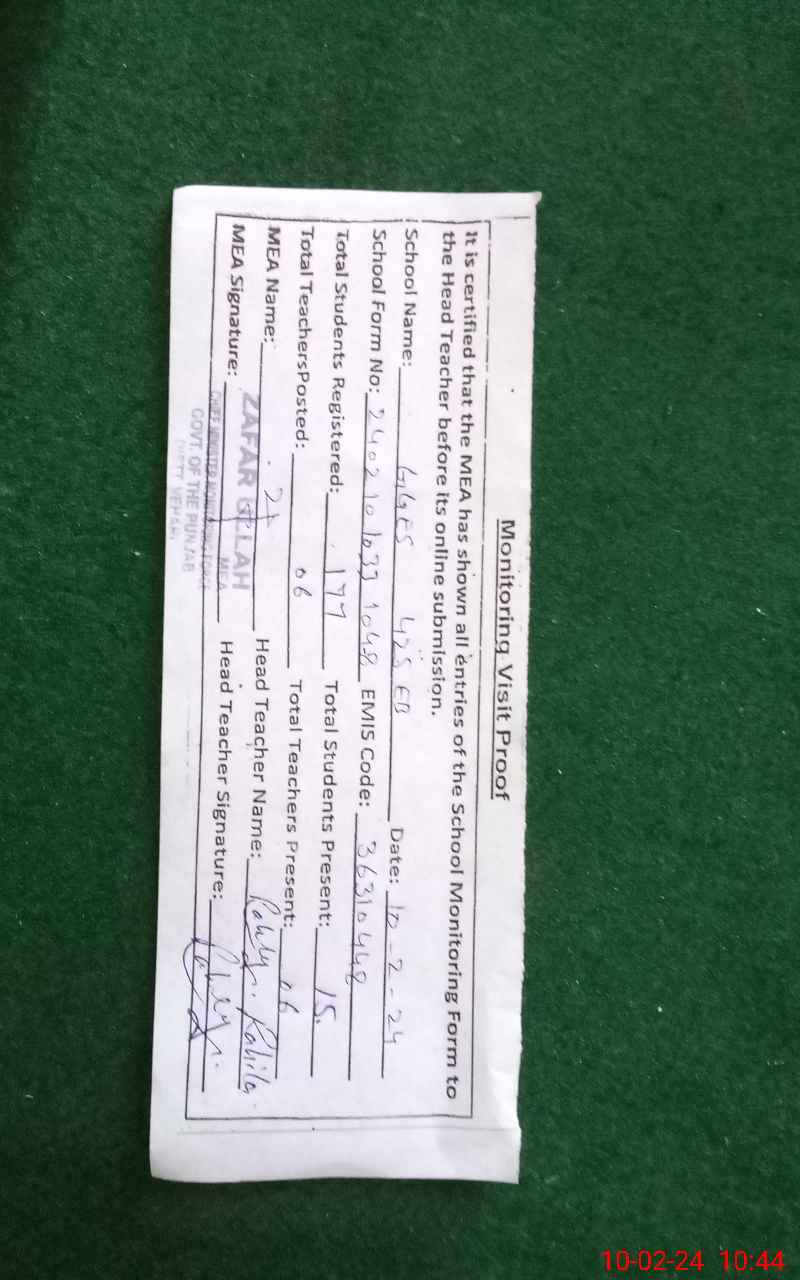 Monitoring Visit Proof
It is certified that the MEA has shown all entries of the School Monitoring Form to
the Head Teacher before its online submission.
School Name: GGES 425 EB Date: 10-2-24
School Form No: EMIS Code: 36310448
Total Students Registered: 177 Total Students Present: 15
Total TeachersPosted: 06 Total Teachers Present: 06
MEA Name: Head Teacher Name:
ZAFAR ULLAH
MEA Signature: Head Teacher Signature:
MEA
CHIEF MINISTER MONITORING FORCE
GOVT. OF THE PUNJAB
VEHARI
10-02-24 10:44